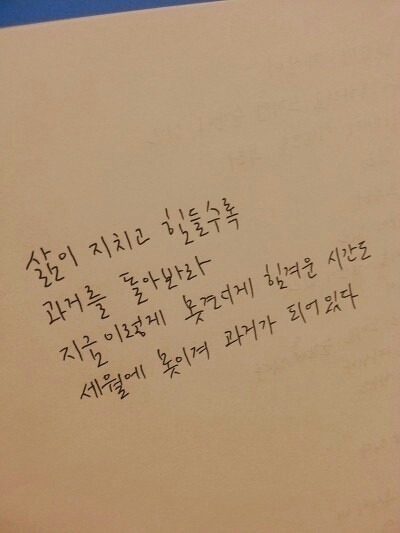 삶이 지치고 힘들수록
과거를 돌아봐라
지금 이렇게 못견디게 힘겨운 시간도
세월에 못이겨 과거가 되어있다